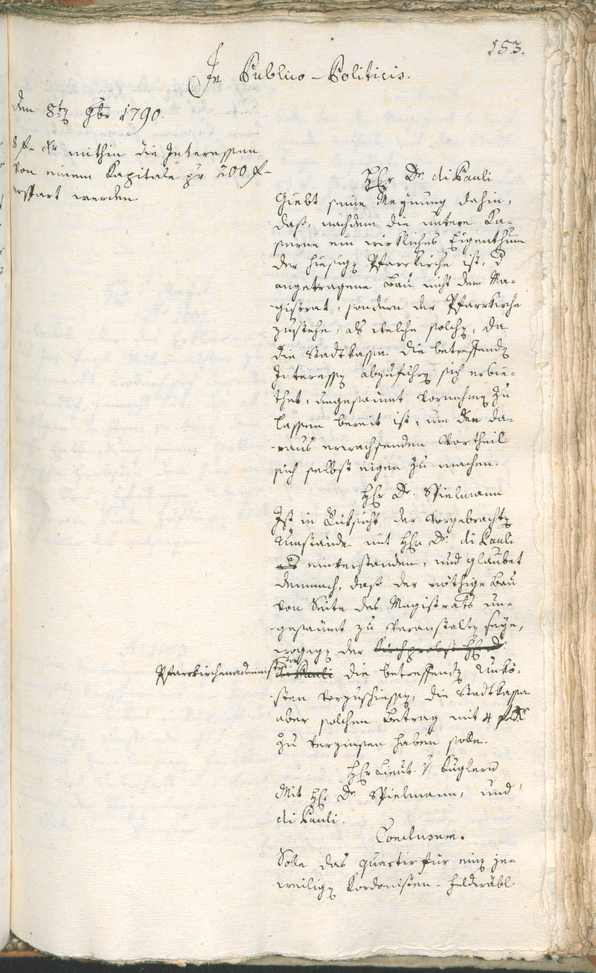 153.
In Publico-Politicis.
den 8tn 9br 1790.
8 f - xr mithin die Interessen
von einem Kapitale pr 200 f -
erspart werden.
Hr Dr di Pauli
Giebt seine Meynung dahin,
daß, nachdem die untere Ka-
serne ein wirkliches Eigenthum
der hiesign Pfarrkirche ist, d
angetragene Bau nicht dem Ma-
gistrat, sondern der Pfarrkirche
zustehe, als welche solchn, da
die Stadtkassa die betreffendn
Interessn abzuführn sich erbie-
thet, ungesäumt vornehmen zu
lassen bereit ist, um den da-
raus erwachsenden Vortheil
sich selbst eigen zu machen.
Hr Dr Spielmann
Ist in Rücksicht der vorgebrachtn
Umstände mit Hr Dr di Pauli
einverstanden, und glaubet
demnach, daß der nöthige Bau
von Seite des Magistrats un-
gesäumt zu veranstaltn seye,
wogegn der
Pfarrkirchenadminist di Pauli die betreffendn Unkö-
sten vorzuschiessn, die Stadtkassa
aber solchen Betrag mit 4 pr
zu verzinsen haben solle.
Hr Lieut. v Kuglern
Mit Hr Dr Spielmann, und
di Pauli.
Conclusum.
Solle das Quartir für einn je-
weilign Kordonisten-Feldwäbl